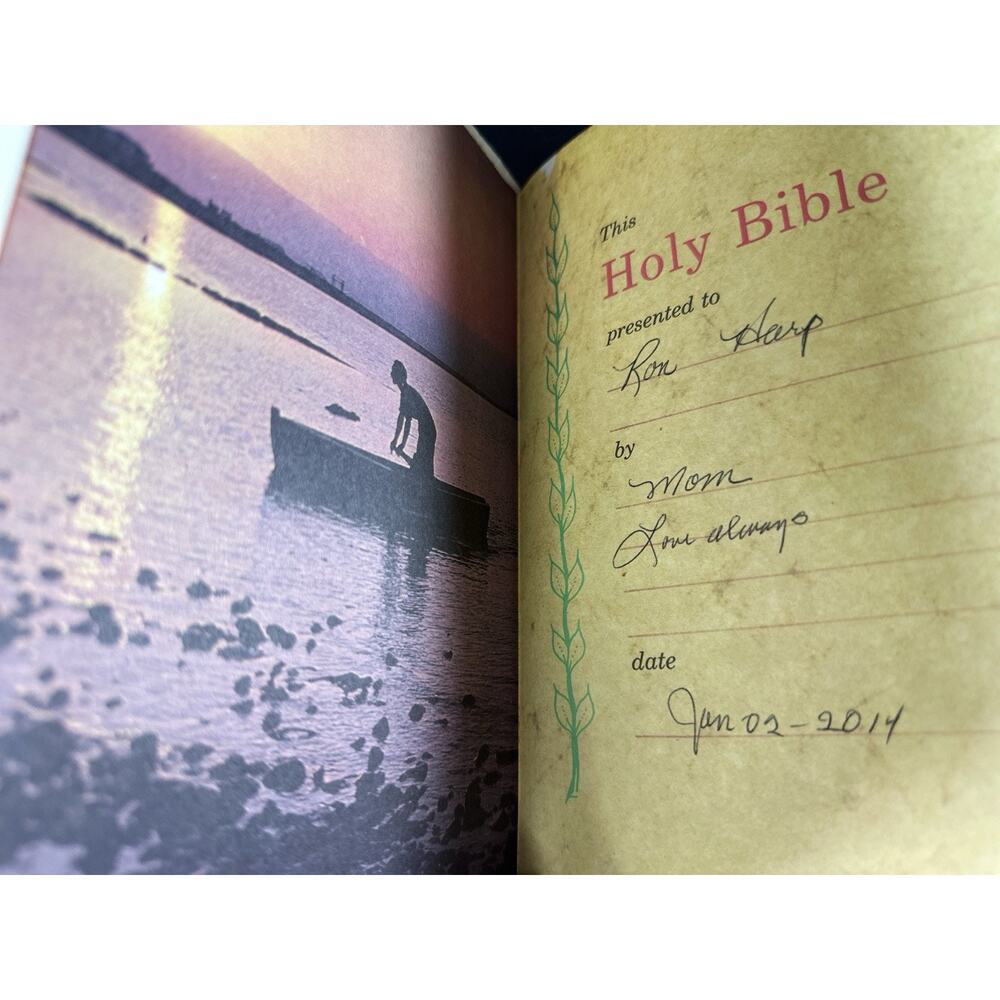 This
Holy Bible
presented to
Ron Harp
by
Mom
Love always
date
Jan 02-2014